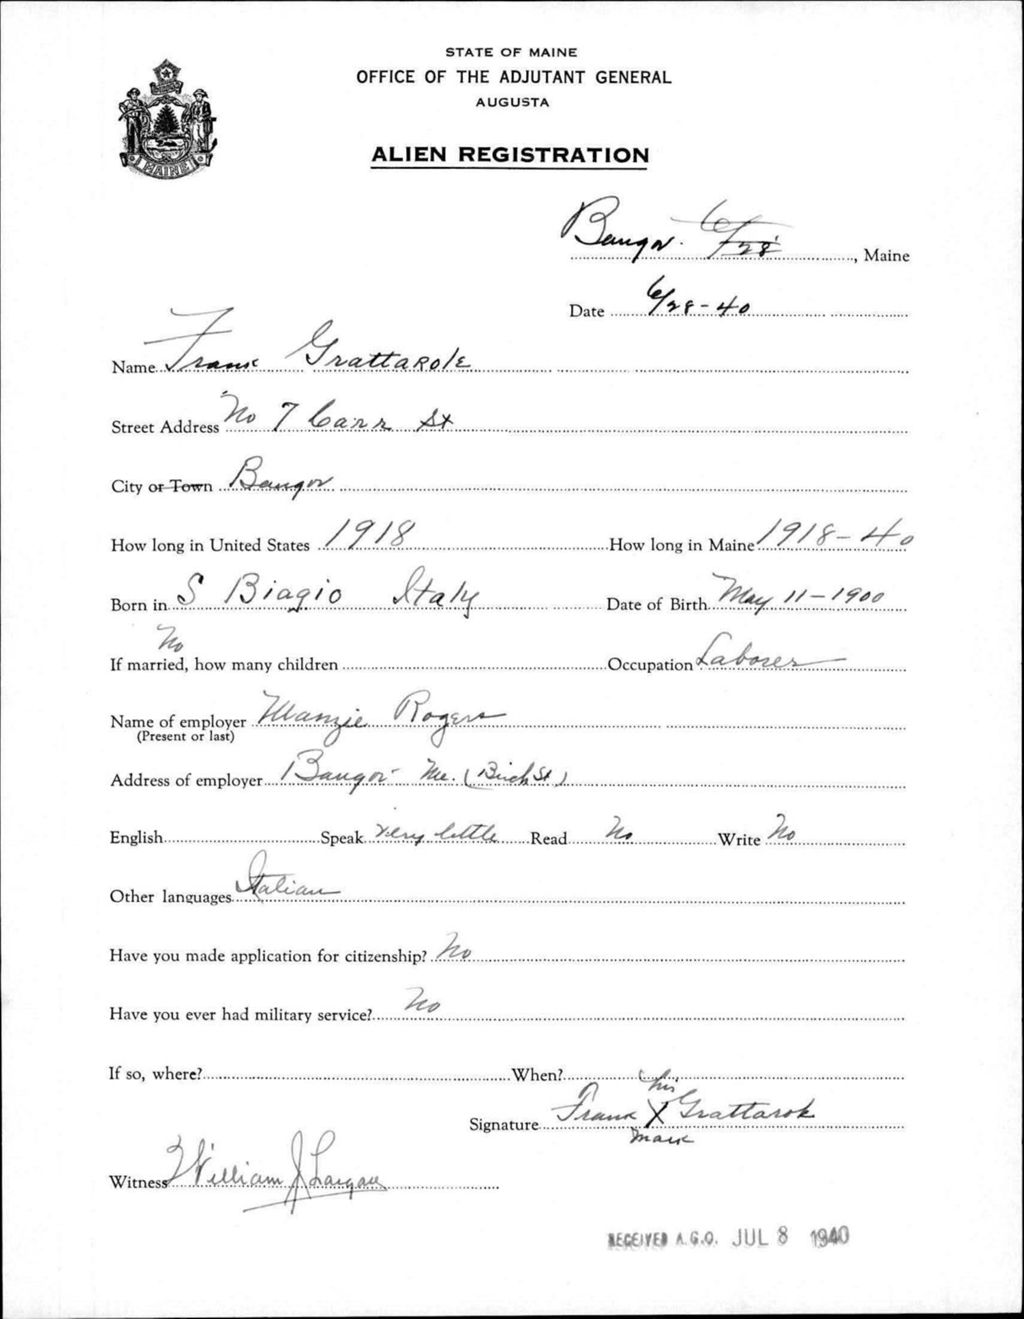 STATE OF MAINE
OFFICE OF THE ADJUTANT GENERAL
AUGUSTA
MAINE
ALIEN REGISTRATION
Bangor. 6/28, Maine
Date 6/28-40
Name Frank Grattarole
Street Address No 7 Carr St
City or Town Bangor
How long in United States 1918 How long in Maine 1918-40
Born in S Biagio Italy Date of Birth May 11-1900
No
If married, how many children Occupation Laborer
Name of employer Manzie Rogers
(Present or last)
Address of employer Bangor Me. (Birch St)
English Speak very little Read No Write No
Other languages Italian
Have you made application for citizenship? No
Have you ever had military service? No
If so, where? When?
his
Signature Frank X Grattarole
mark
Witness William J
RECEIVED A.G.O. JUL 8 1940